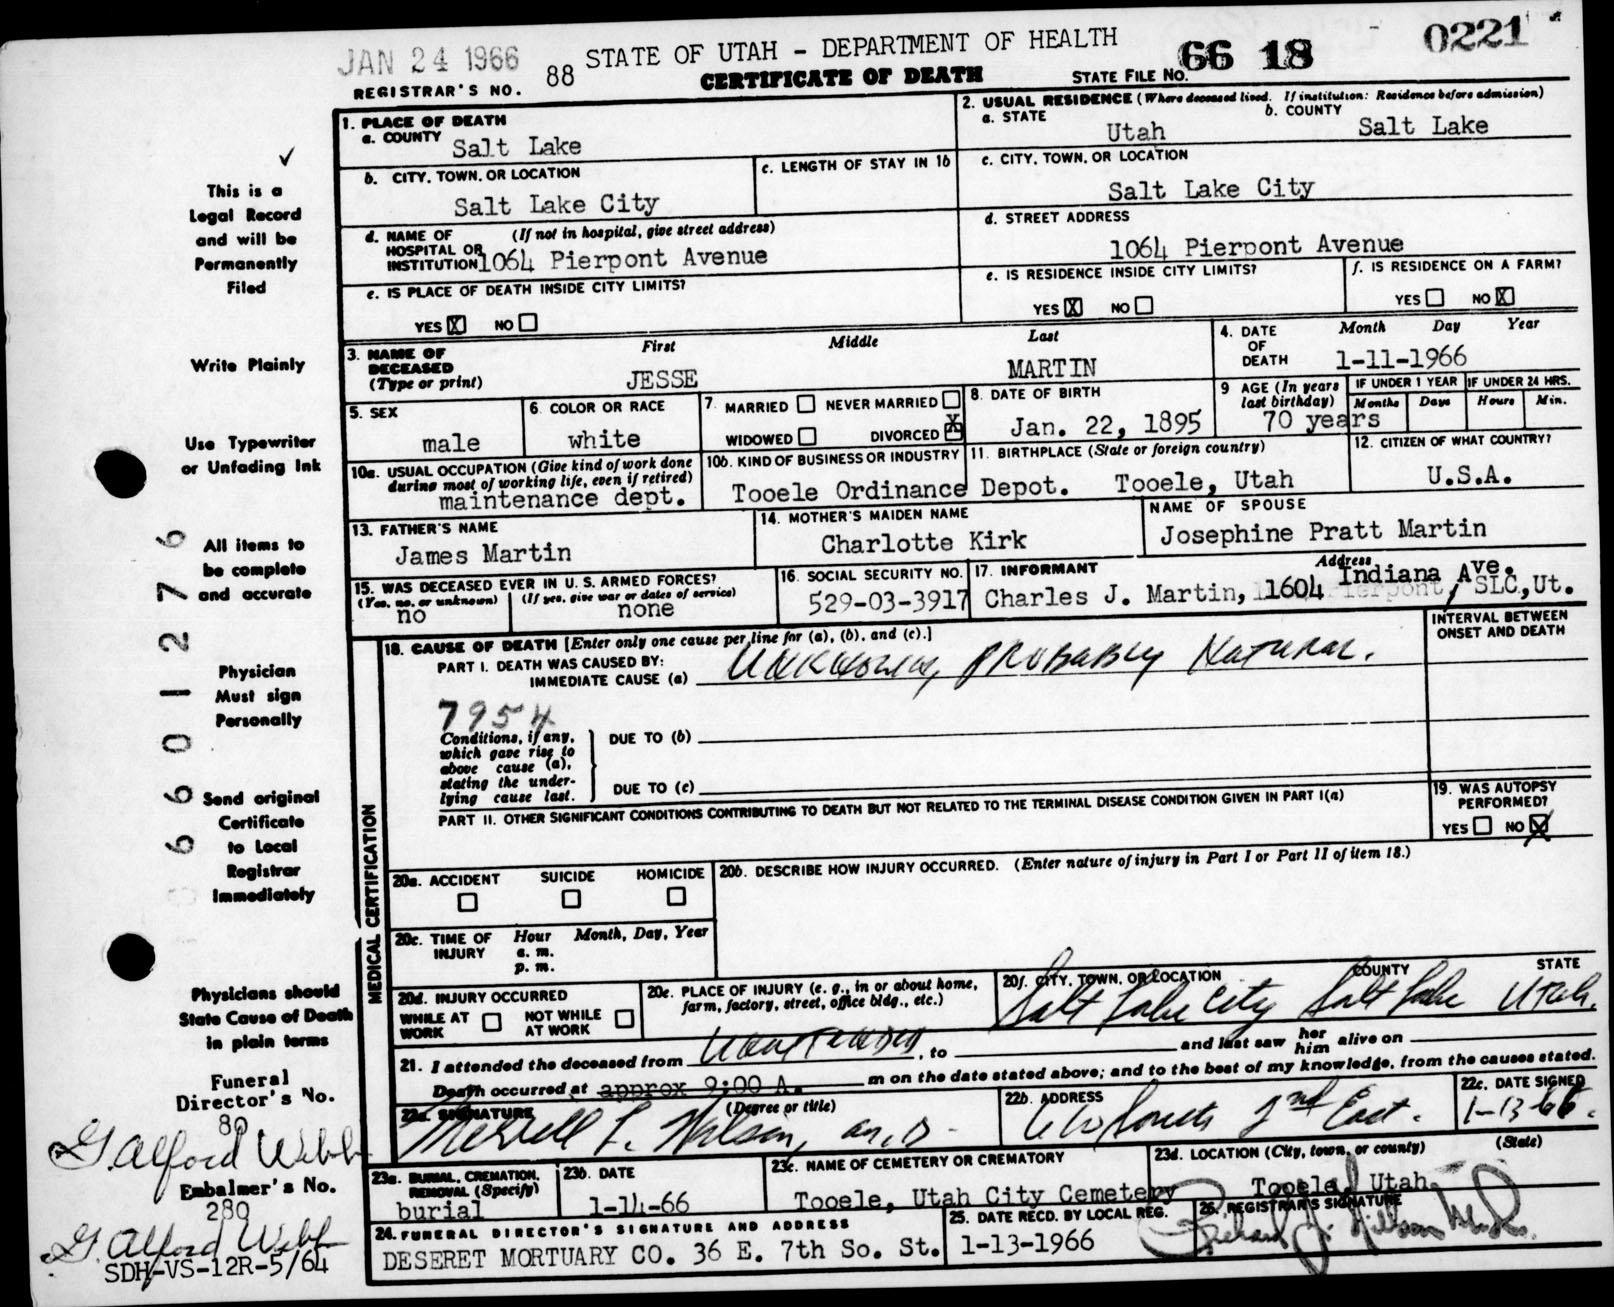 JAN 24 1966
88
STATE OF UTAH - DEPARTMENT OF HEALTH
66 18
0221
REGISTRAR'S NO.
CERTIFICATE OF DEATH
STATE FILE NO.
1. PLACE OF DEATH
a. COUNTY
Salt Lake
2. USUAL RESIDENCE (Where deceased lived. If institution: Residence before admission)
a. STATE
Utah
b. COUNTY
Salt Lake
b. CITY, TOWN, OR LOCATION
Salt Lake City
c. LENGTH OF STAY IN 1b
c. CITY, TOWN, OR LOCATION
Salt Lake City
d. NAME OF HOSPITAL OR INSTITUTION
(If not in hospital, give street address)
1064 Pierpont Avenue
d. STREET ADDRESS
1064 Pierpont Avenue
e. IS PLACE OF DEATH INSIDE CITY LIMITS?
YES X NO
e. IS RESIDENCE INSIDE CITY LIMITS?
YES X NO
f. IS RESIDENCE ON A FARM?
YES NO X
3. NAME OF DECEASED
(Type or print)
First Middle Last
JESSE MARTIN
4. DATE OF DEATH
Month Day Year
1-11-1966
5. SEX
male
6. COLOR OR RACE
white
7. MARRIED NEVER MARRIED
WIDOWED DIVORCED X
8. DATE OF BIRTH
Jan. 22, 1895
9 AGE (In years last birthday)
70 years
IF UNDER 1 YEAR
Months Days
IF UNDER 24 HRS.
Hours Min.
10a. USUAL OCCUPATION (Give kind of work done during most of working life, even if retired)
maintenance dept.
10b. KIND OF BUSINESS OR INDUSTRY
Tooele Ordinance Depot.
11. BIRTHPLACE (State or foreign country)
Tooele, Utah
12. CITIZEN OF WHAT COUNTRY?
U.S.A.
13. FATHER'S NAME
James Martin
14. MOTHER'S MAIDEN NAME
Charlotte Kirk
NAME OF SPOUSE
Josephine Pratt Martin
15. WAS DECEASED EVER IN U. S. ARMED FORCES?
(Yes, no, or unknown) (If yes, give war or dates of service)
no none
16. SOCIAL SECURITY NO.
529-03-3917
17. INFORMANT Address
Charles J. Martin, 1604 Indiana Ave. SLC, Ut.
MEDICAL CERTIFICATION
18. CAUSE OF DEATH [Enter only one cause per line for (a), (b), and (c).]
INTERVAL BETWEEN ONSET AND DEATH
PART I. DEATH WAS CAUSED BY:
IMMEDIATE CAUSE (a) Unknown, Probably Natural.
7954
Conditions, if any, which gave rise to above cause (a), stating the underlying cause last.
DUE TO (b)
DUE TO (c)
PART II. OTHER SIGNIFICANT CONDITIONS CONTRIBUTING TO DEATH BUT NOT RELATED TO THE TERMINAL DISEASE CONDITION GIVEN IN PART I(a)
19. WAS AUTOPSY PERFORMED?
YES NO X
20a. ACCIDENT SUICIDE HOMICIDE
20b. DESCRIBE HOW INJURY OCCURRED. (Enter nature of injury in Part I or Part II of item 18.)
20c. TIME OF INJURY
Hour Month, Day, Year
a. m.
p. m.
20d. INJURY OCCURRED
WHILE AT WORK NOT WHILE AT WORK
20e. PLACE OF INJURY (e. g., in or about home, farm, factory, street, office bldg., etc.)
20f. CITY, TOWN, OR LOCATION COUNTY STATE
Salt Lake City Salt Lake Utah.
21. I attended the deceased from , to and last saw her him alive on
Death occurred at approx 9:00 A. m on the date stated above; and to the best of my knowledge, from the causes stated.
22a. SIGNATURE (Degree or title)
Merrell L. Wilson, M.D.
22b. ADDRESS
2nd East.
22c. DATE SIGNED
1-13-66.
23a. BURIAL, CREMATION, REMOVAL (Specify)
burial
23b. DATE
1-14-66
23c. NAME OF CEMETERY OR CREMATORY
Tooele, Utah City Cemetery
23d. LOCATION (City, town, or county) (State)
Tooele, Utah
24. FUNERAL DIRECTOR'S SIGNATURE AND ADDRESS
DESERET MORTUARY CO. 36 E. 7th So. St.
25. DATE RECD. BY LOCAL REG.
1-13-1966
26. REGISTRAR'S SIGNATURE
This is a
Legal Record
and will be
Permanently
Filed
Write Plainly
Use Typewriter
or Unfading Ink
All items to
be complete
and accurate
Physician
Must sign
Personally
Send original
Certificate
to Local
Registrar
Immediately
Physicians should
State Cause of Death
in plain terms
Funeral
Director's No.
80
G. Alford Webb
Embalmer's No.
280
G. Alford Webb
SDH-VS-12R-5/64
6601276